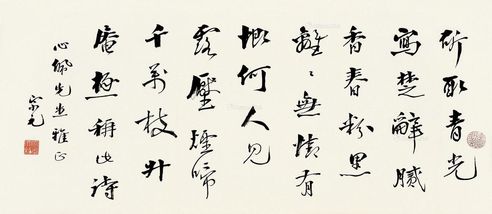 斫取青光
寫楚辭膩
香春粉黑
離〻無情有
恨何人見
露壓煙啼
千萬枝升
庵極稱此詩
心佩先生雅正
宗元